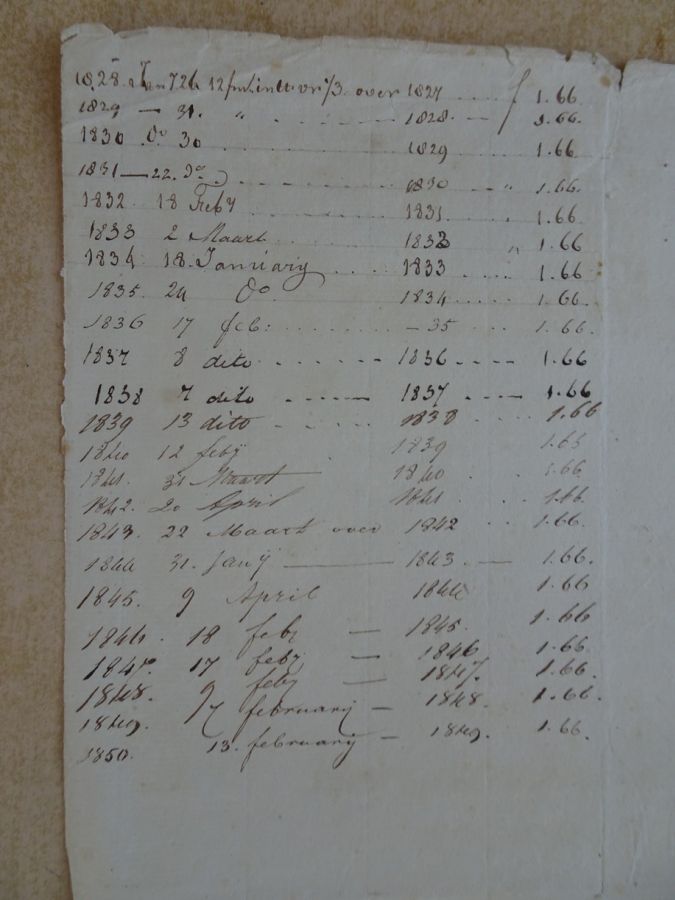 1828 Jan 26 over 1827 f 1.66.
1829 — 31. " 1828. — 1.66.
1830 do 30 1829 1.66
1831 — 22. do 1830 " 1.66.
1832 18 Feby 1831. " 1.66
1833 2 Maart 1832 " 1.66
1834 18. January 1833 1.66
1835. 24 do 1834 1.66.
1836 17 feb: — 35 1.66.
1837 8 dito 1836 1.66
1838 7 dito 1837 1.66
1839 13 dito 1838 1.66
1840 12 feby 1839 1.66
1841. 31 Maart 1840 1.66
1842. 20 April 1841 1.66
1843. 22 Maart over 1842 1.66.
1844 31. Jany — 1843. — 1.66.
1845. 9 April 1844 1.66
1846. 18 feby — 1845. 1.66
1847. 17 feby — 1846 1.66
1848. 9 feby — 1847. 1.66.
1849. 7 february — 1848. 1.66.
1850. 13. february — 1849. 1.66.